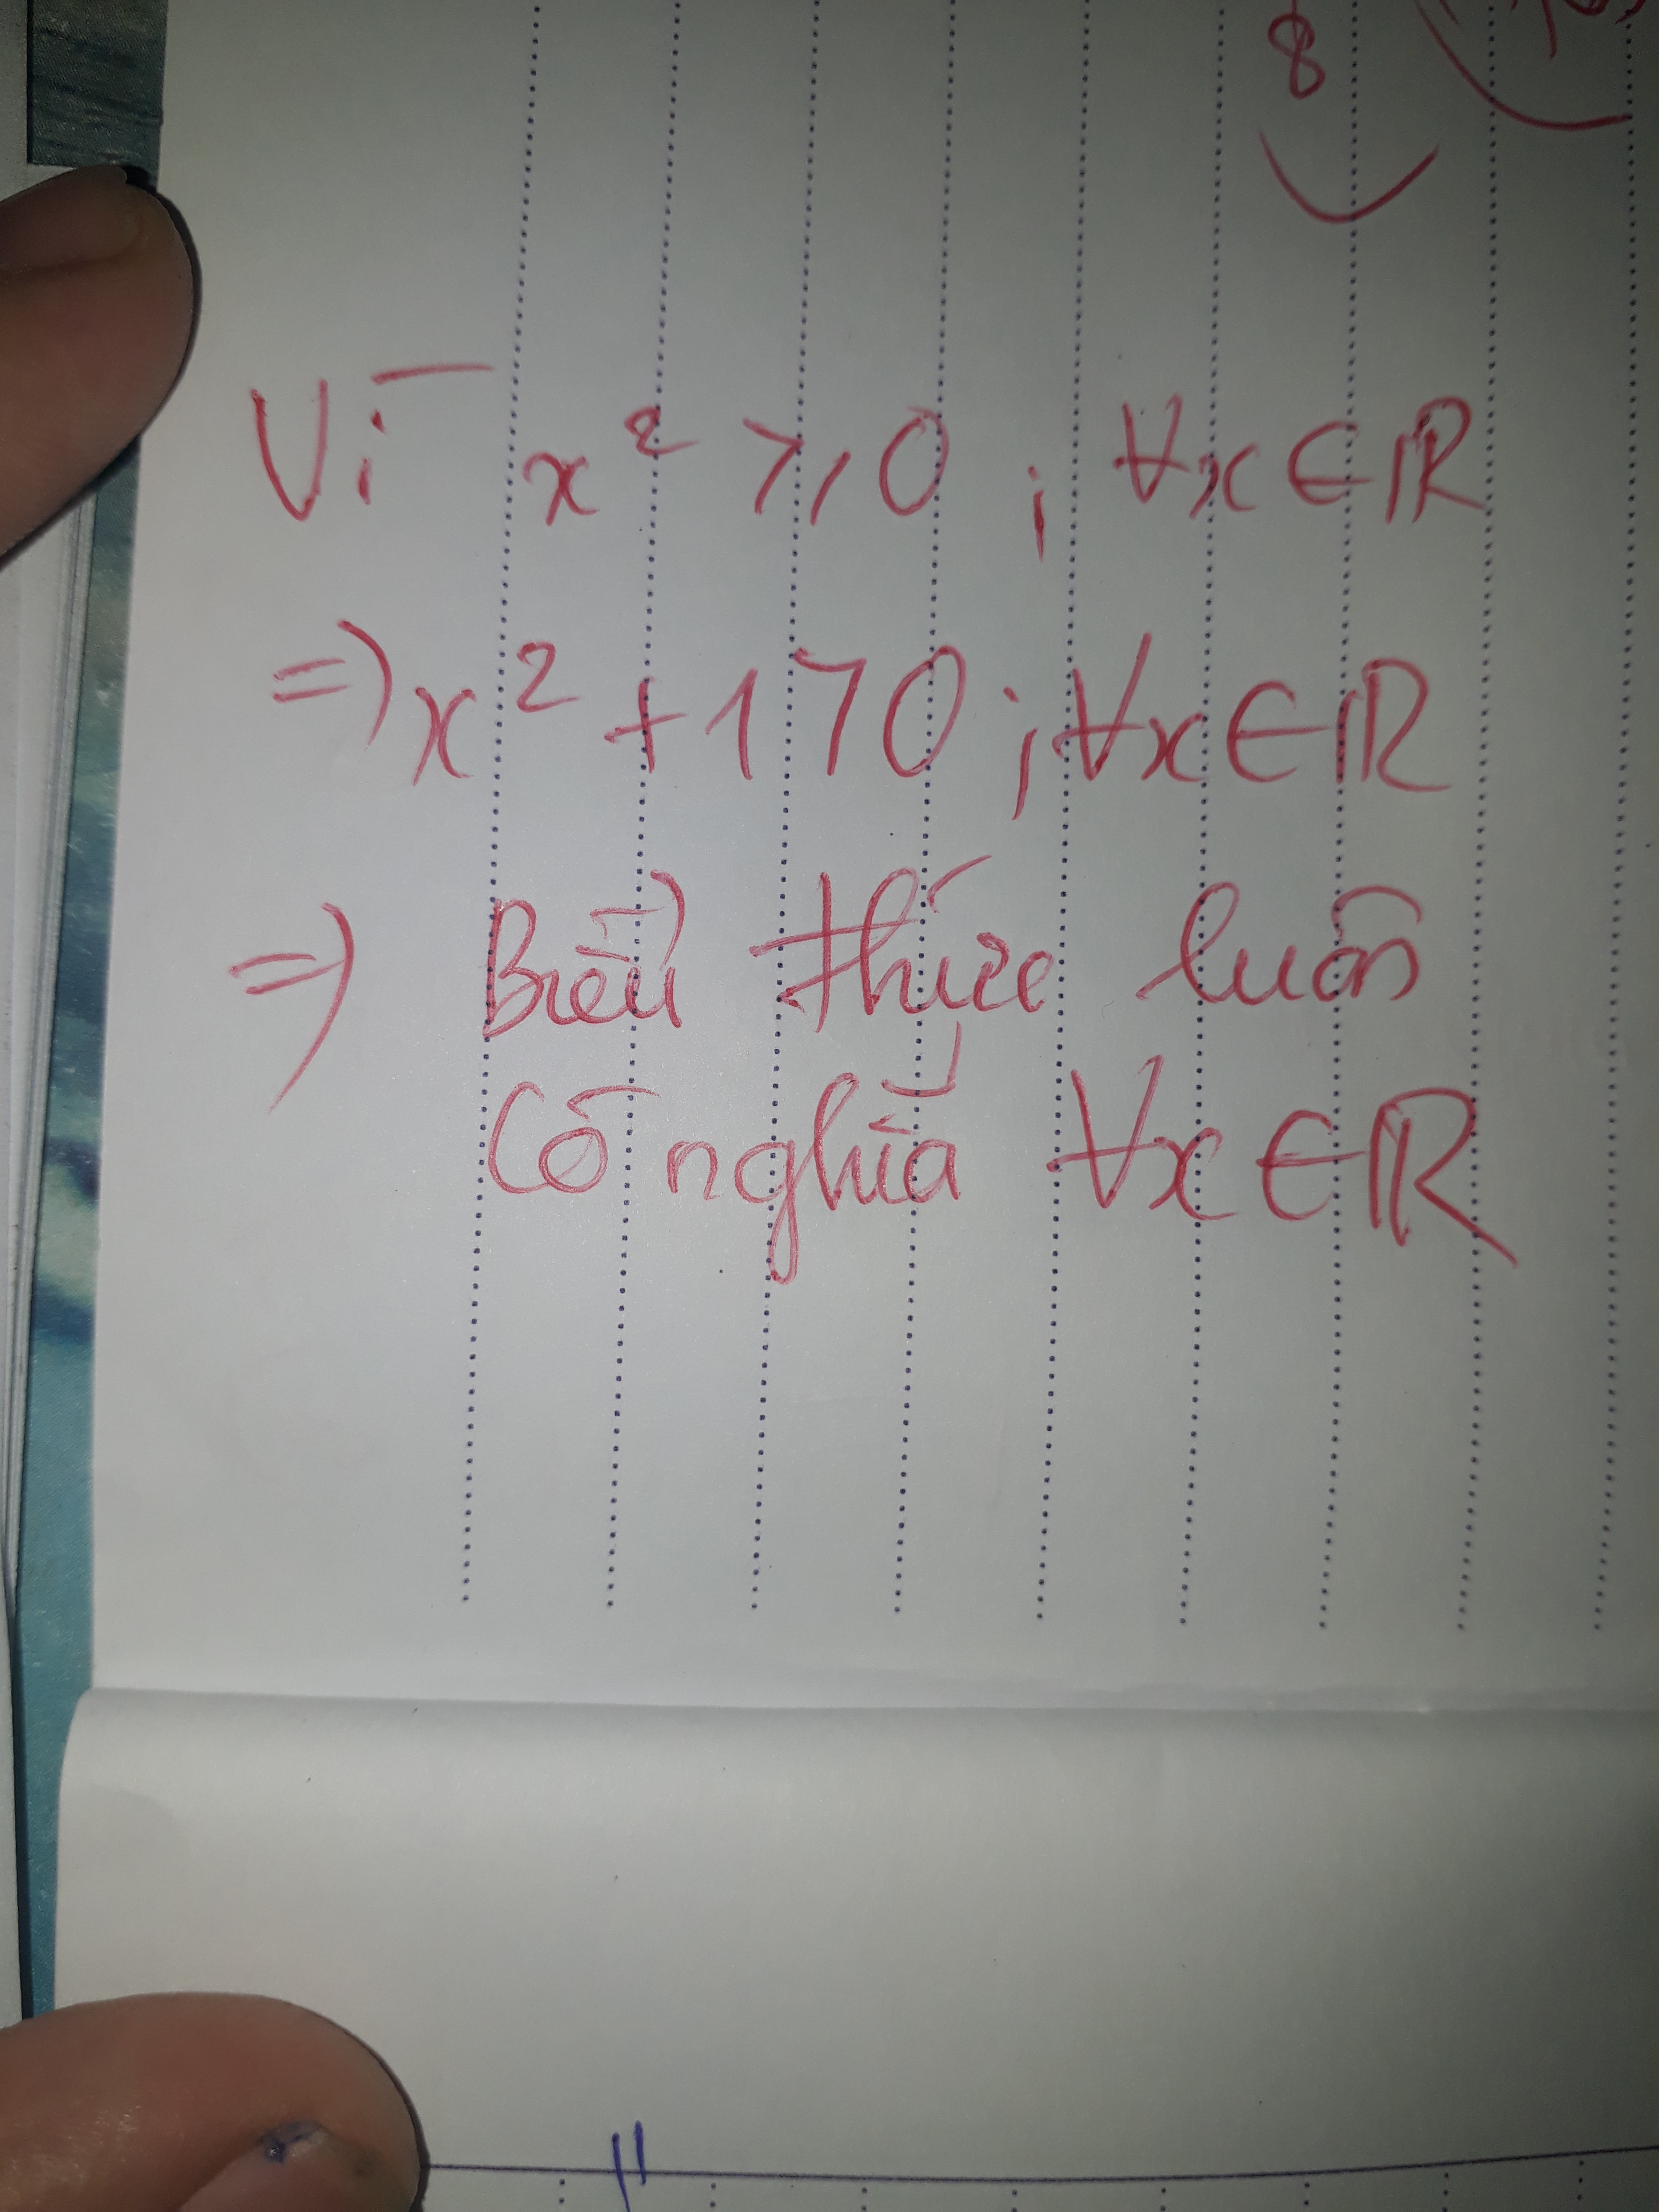 8
Vì x² ≥ 0 ; ∀x ∈ ℝ
=> x² + 1 > 0 ; ∀x ∈ ℝ
=> Biểu thức luôn
có nghĩa ∀x ∈ ℝ